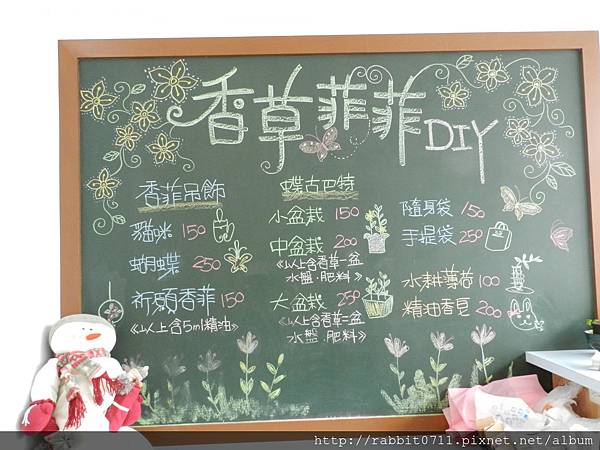 香草菲菲DIY
香菲吊飾
貓咪 150
蝴蝶 250
祈願香菲 150
《以上含5ml精油》
蝶古巴特
小盆栽 150
中盆栽 200
《以上含香草一盆
水盤.肥料》
大盆栽 250
《以上含香草三盆
水盤.肥料》
隨身袋 150
手提袋 250
水耕薄荷 100
精油香皂 200
http://rabbit0711.pixnet.net/album